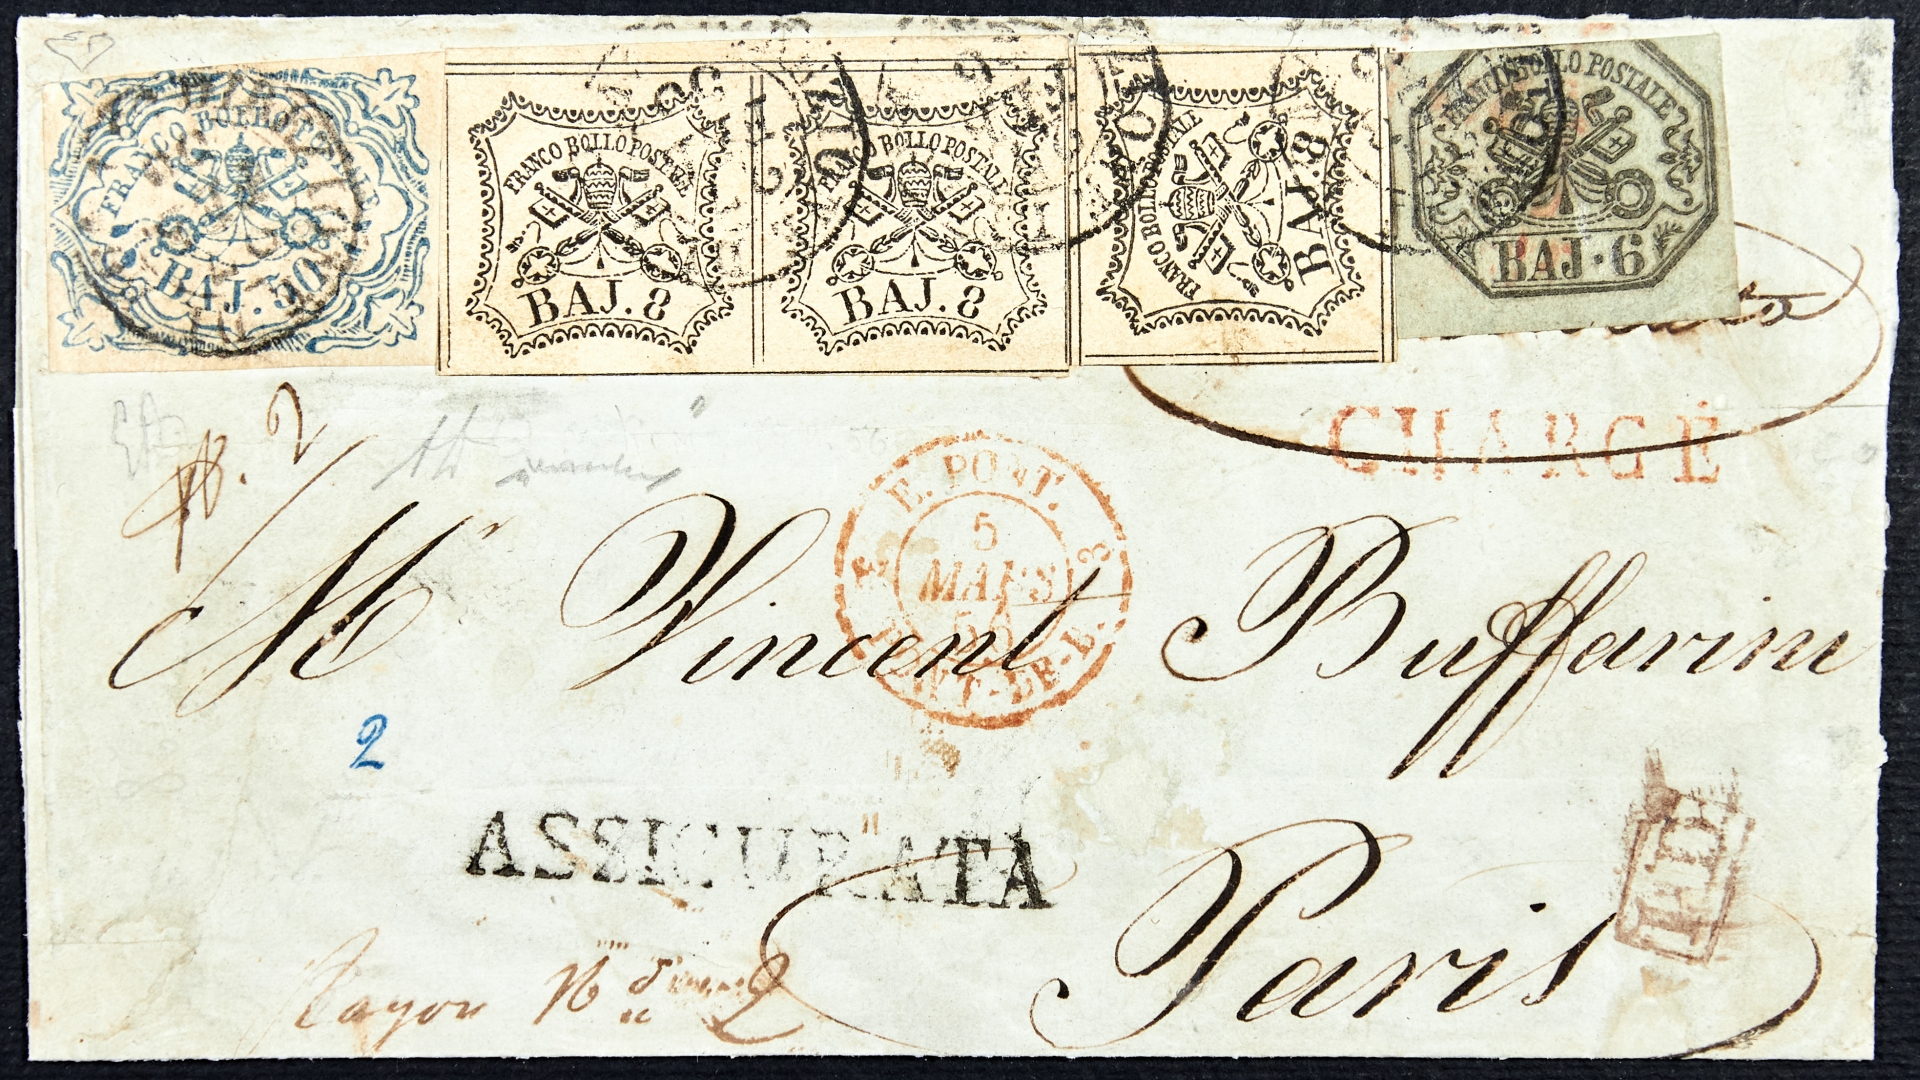 FRANCO BOLLO POSTALE
BAJ. 50
FRANCO BOLLO POSTALE
BAJ. 8
FRANCO BOLLO POSTALE
BAJ. 8
FRANCO BOLLO POSTALE
BAJ. 8
FRANCO BOLLO POSTALE
BAJ. 6
CHARGÉ
E. PONT. 3
5
MARS
PONT-DE-B.
Mr Vincent Buffarini
2
ASSICURATA
Paris
P.D.
Rayon No 2